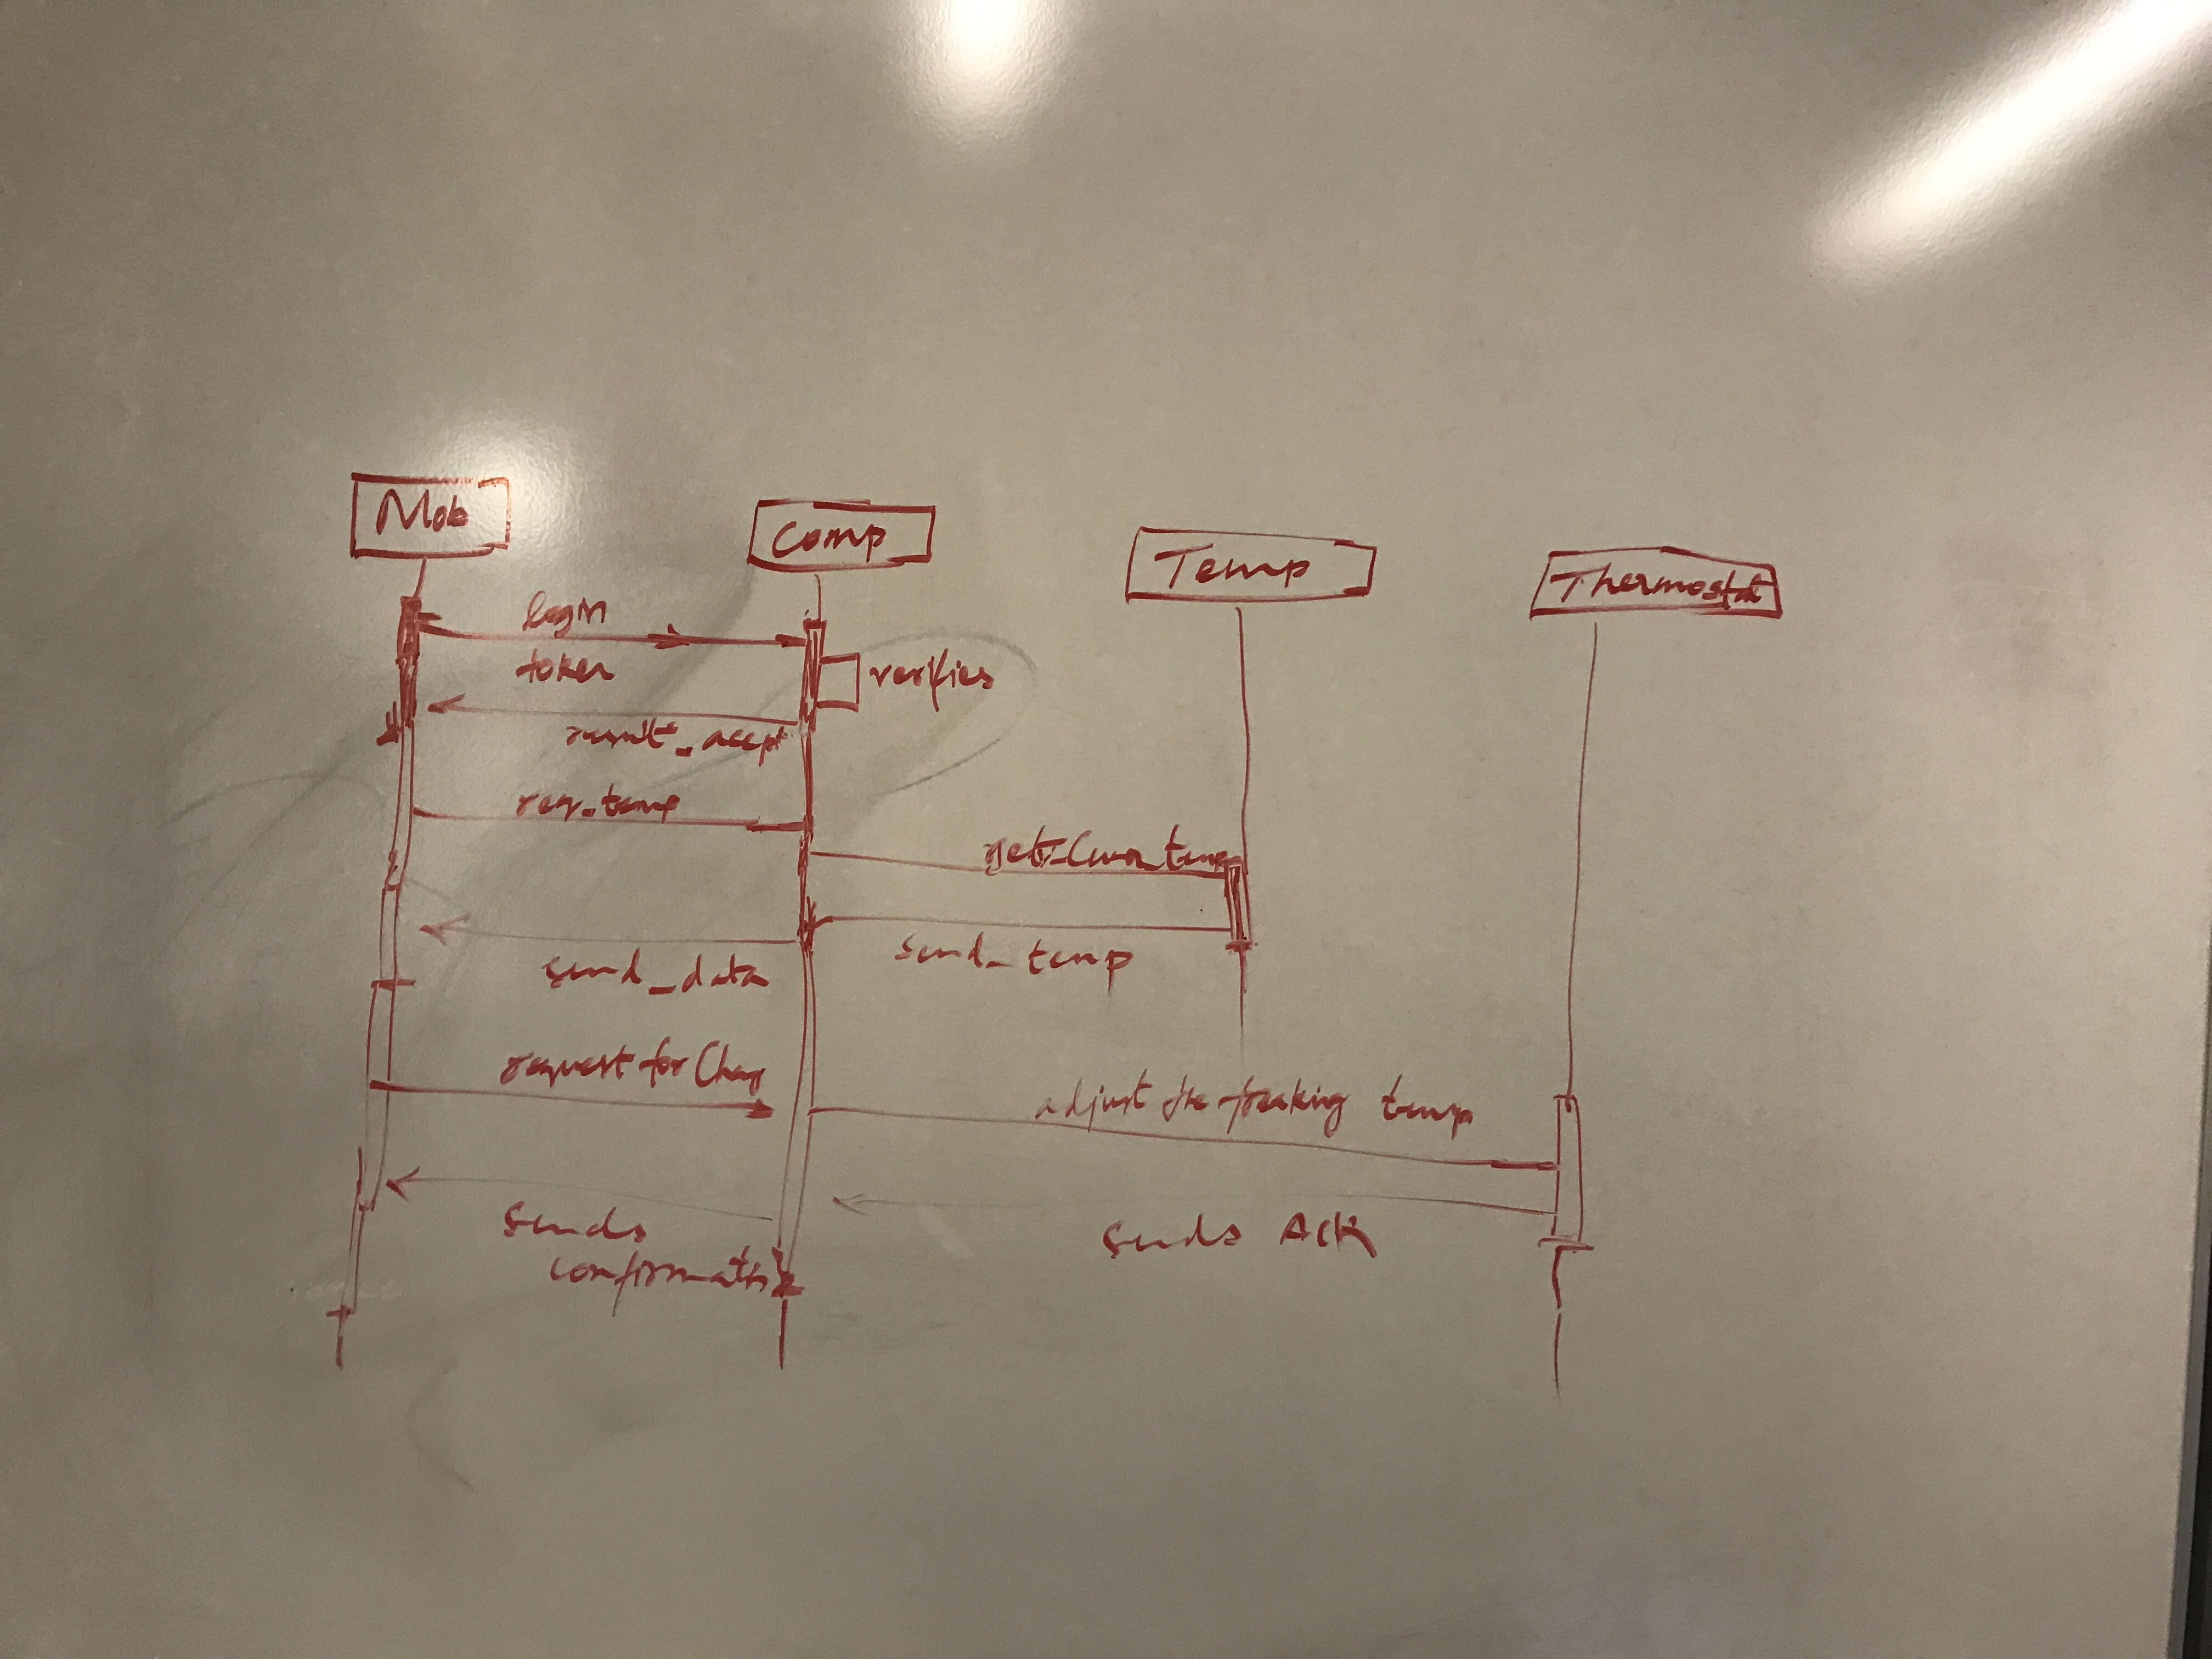 Mob
Comp
Temp
Thermostat
login
token
verifies
result_accept
req_temp
get_Curr_temp
send_temp
send_data
request for Chang
adjust the freaking temp
sends
confirmatn
sends Ack